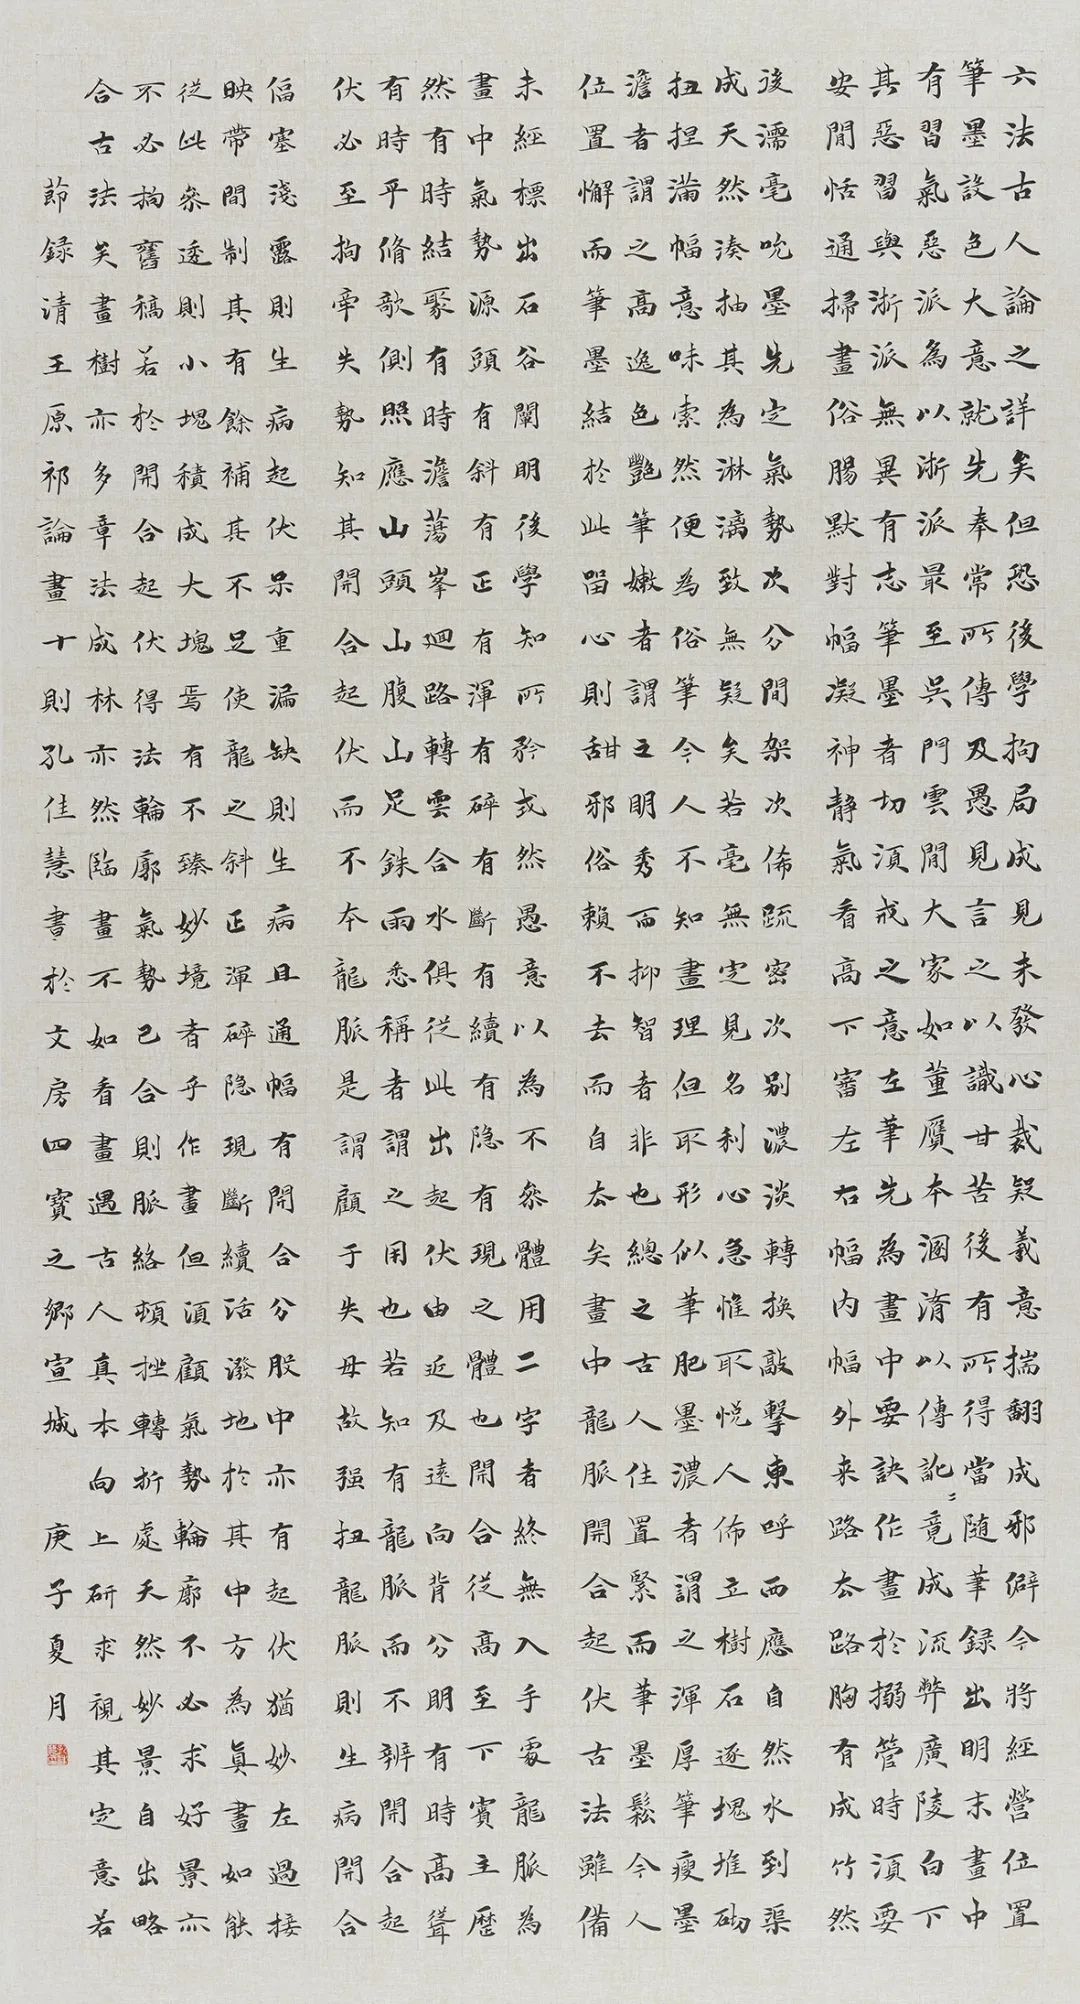 六法古人論之詳矣但恐後學拘局成見未發心裁疑義意揣翻成邪僻今將經營位置
筆墨設色大意就先奉常所傳及愚見言之以識甘苦後有所得當随筆録出明末畫中
有習氣惡派為以浙派最至吳門雲間大家如董贋本溷淆以傳訛〻竟成流弊廣陵白下
其惡習與浙派無異有志筆墨者切須戒之意左筆先為畫中要訣作畫於搦管時須要
安閒恬通掃畫俗腸默對幅凝神静氣看高下審左右幅内幅外来路去路胸有成竹然
後濡毫吮墨先定氣勢次分間架次佈疏密次别濃淡轉換敲擊東呼西應自然水到渠
成天然湊抽其為淋漓致無疑矣若毫無定見名利心急惟取悅人佈立樹石逐塊堆砌
扭捏滿幅意味索然便為俗筆今人不知畫理但取形似筆肥墨濃者謂之渾厚筆瘦墨
澹者謂之高逸色艷筆嫩者謂之明秀而抑智者非也總之古人住置緊而筆墨鬆今人
位置懈而筆墨結於此留心則甜邪俗賴不去而自去矣畫中龍脈開合起伏古法雖備
未經標出石谷闡明後學知所矜式然愚意以為不參體用二字者終無入手處龍脈為
畫中氣勢源頭有斜有正有渾有碎有斷有續有隐有現之體也開合從髙至下賓主歷
然有時結聚有時澹蕩峯迴路轉雲合水俱從此出起伏由近及遠向背分明有時髙聳
有時平脩欹側照應山頭山腹山足銖兩悉稱者謂之用也若知有龍脈而不辨開合起
伏必至拘牽失勢知其開合起伏而不本龍脈是謂顧于失母故强扭龍脈則生病開合
偪塞淺露則生病起伏呆重漏缺則生病且通幅有開合分股中亦有起伏猶妙左過接
映帶間制其有餘補其不足使龍之斜正渾碎隐現斷續活潑地於其中方為真畫如能
從此參透則小塊積成大塊焉有不臻妙境者乎作畫但須顧氣勢輪廓不必求好景亦
不必拘舊稿若於開合起伏得法輪廓氣勢已合則脈絡頓挫轉折處天然妙景自出略
合古法矣畫樹亦多章法成林亦然臨畫不如看畫遇古人真本向上研求視其定意若
節録清王原祁論畫十則孔佳慧書於文房四寶之鄉宣城庚子夏月